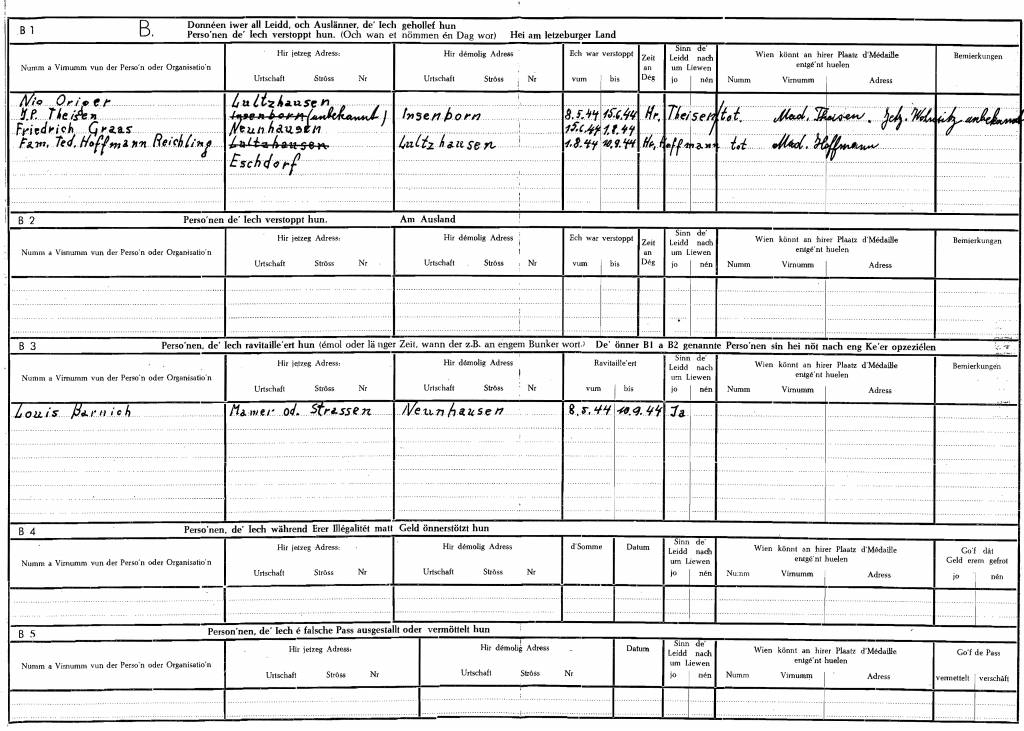 B 1 B. Donnéen iwer all Leidd, och Auslänner, de' Iech gehollef hun
Perso'nen de' Iech verstoppt hun. (Och wan et nömmen én Dag wor) Hei am letzeburger Land
Numm a Virnumm vun der Perso'n oder Organisatio'n Hir jetzeg Adress: Urtschaft Ströss Nr Hir démolig Adress Urtschaft Ströss Nr Ech war verstoppt vum bis Zeit an Dég Sinn de' Leidd nach um Liewen jo nén Wien könnt an hirer Plaatz d'Médaille entgé'nt huelen Numm Virnumm Adress Bemierkungen
Nic Lultzhausen
J.P. Theisen Insenborn (unbekannt) Insenborn 8.5.44 15.6.44 Hr. Theisen tot. Mad. Theisen. unbekannt
Friedrich Graas Neunhausen 15.6.44 1.8.44
Fam. Ted. Hoffmann Reichling Lultzhausen Lultzhausen 1.8.44 10.9.44 Hr. Hoffmann tot Mad. Hoffmann
Eschdorf
B 2 Perso'nen de' Iech verstoppt hun. Am Ausland
Numm a Virnumm vun der Perso'n oder Organisatio'n Hir jetzeg Adress: Urtschaft Ströss Nr Hir démolig Adress Urtschaft Ströss Nr Ech war verstoppt vum bis Zeit an Dég Sinn de' Leidd nach um Liewen jo nén Wien könnt an hirer Plaatz d'Médaille entgé'nt huelen Numm Virnumm Adress Bemierkungen
B 3 Perso'nen, de' Iech ravitaille'ert hun (émol oder länger Zeit, wann der z.B. an engem Bunker wort.) De' önner B1 a B2 genannte Perso'nen sin hei nöt nach eng Ke'er opzeziélen
Numm a Virnumm vun der Perso'n oder Organisatio'n Hir jetzeg Adress: Urtschaft Ströss Nr Hir démolig Adress Urtschaft Ströss Nr Ravitaille'ert vum bis Sinn de' Leidd nach um Liewen jo nén Wien könnt an hirer Plaatz d'Médaille entgé'nt huelen Numm Virnumm Adress Bemierkungen
Louis Barnich Mamer od. Strassen Neunhausen 8.5.44 10.9.44 Ja
B 4 Perso'nen, de' Iech während Erer Illégalitét matt Geld önnerstötzt hun
Numm a Virnumm vun der Perso'n oder Organisatio'n Hir jetzeg Adress: Urtschaft Ströss Nr Hir démolig Adress Urtschaft Ströss Nr d'Somme Datum Sinn de' Leidd nach um Liewen jo nén Wien könnt an hirer Plaatz d'Médaille entgé'nt huelen Numm Virnumm Adress Go'f dât Geld erem gefrot jo nén
B 5 Person'nen, de' Iech é falsche Pass ausgestallt oder vermöttelt hun
Numm a Virnumm vun der Perso'n oder Organisatio'n Hir jetzeg Adress: Urtschaft Ströss Nr Hir démolig Adress Urtschaft Ströss Nr Datum Sinn de' Leidd nach um Liewen jo nén Wien könnt an hirer Plaatz d'Médaille entgé'nt huelen Numm Virnumm Adress Go'f de Pass vermettelt verschâft